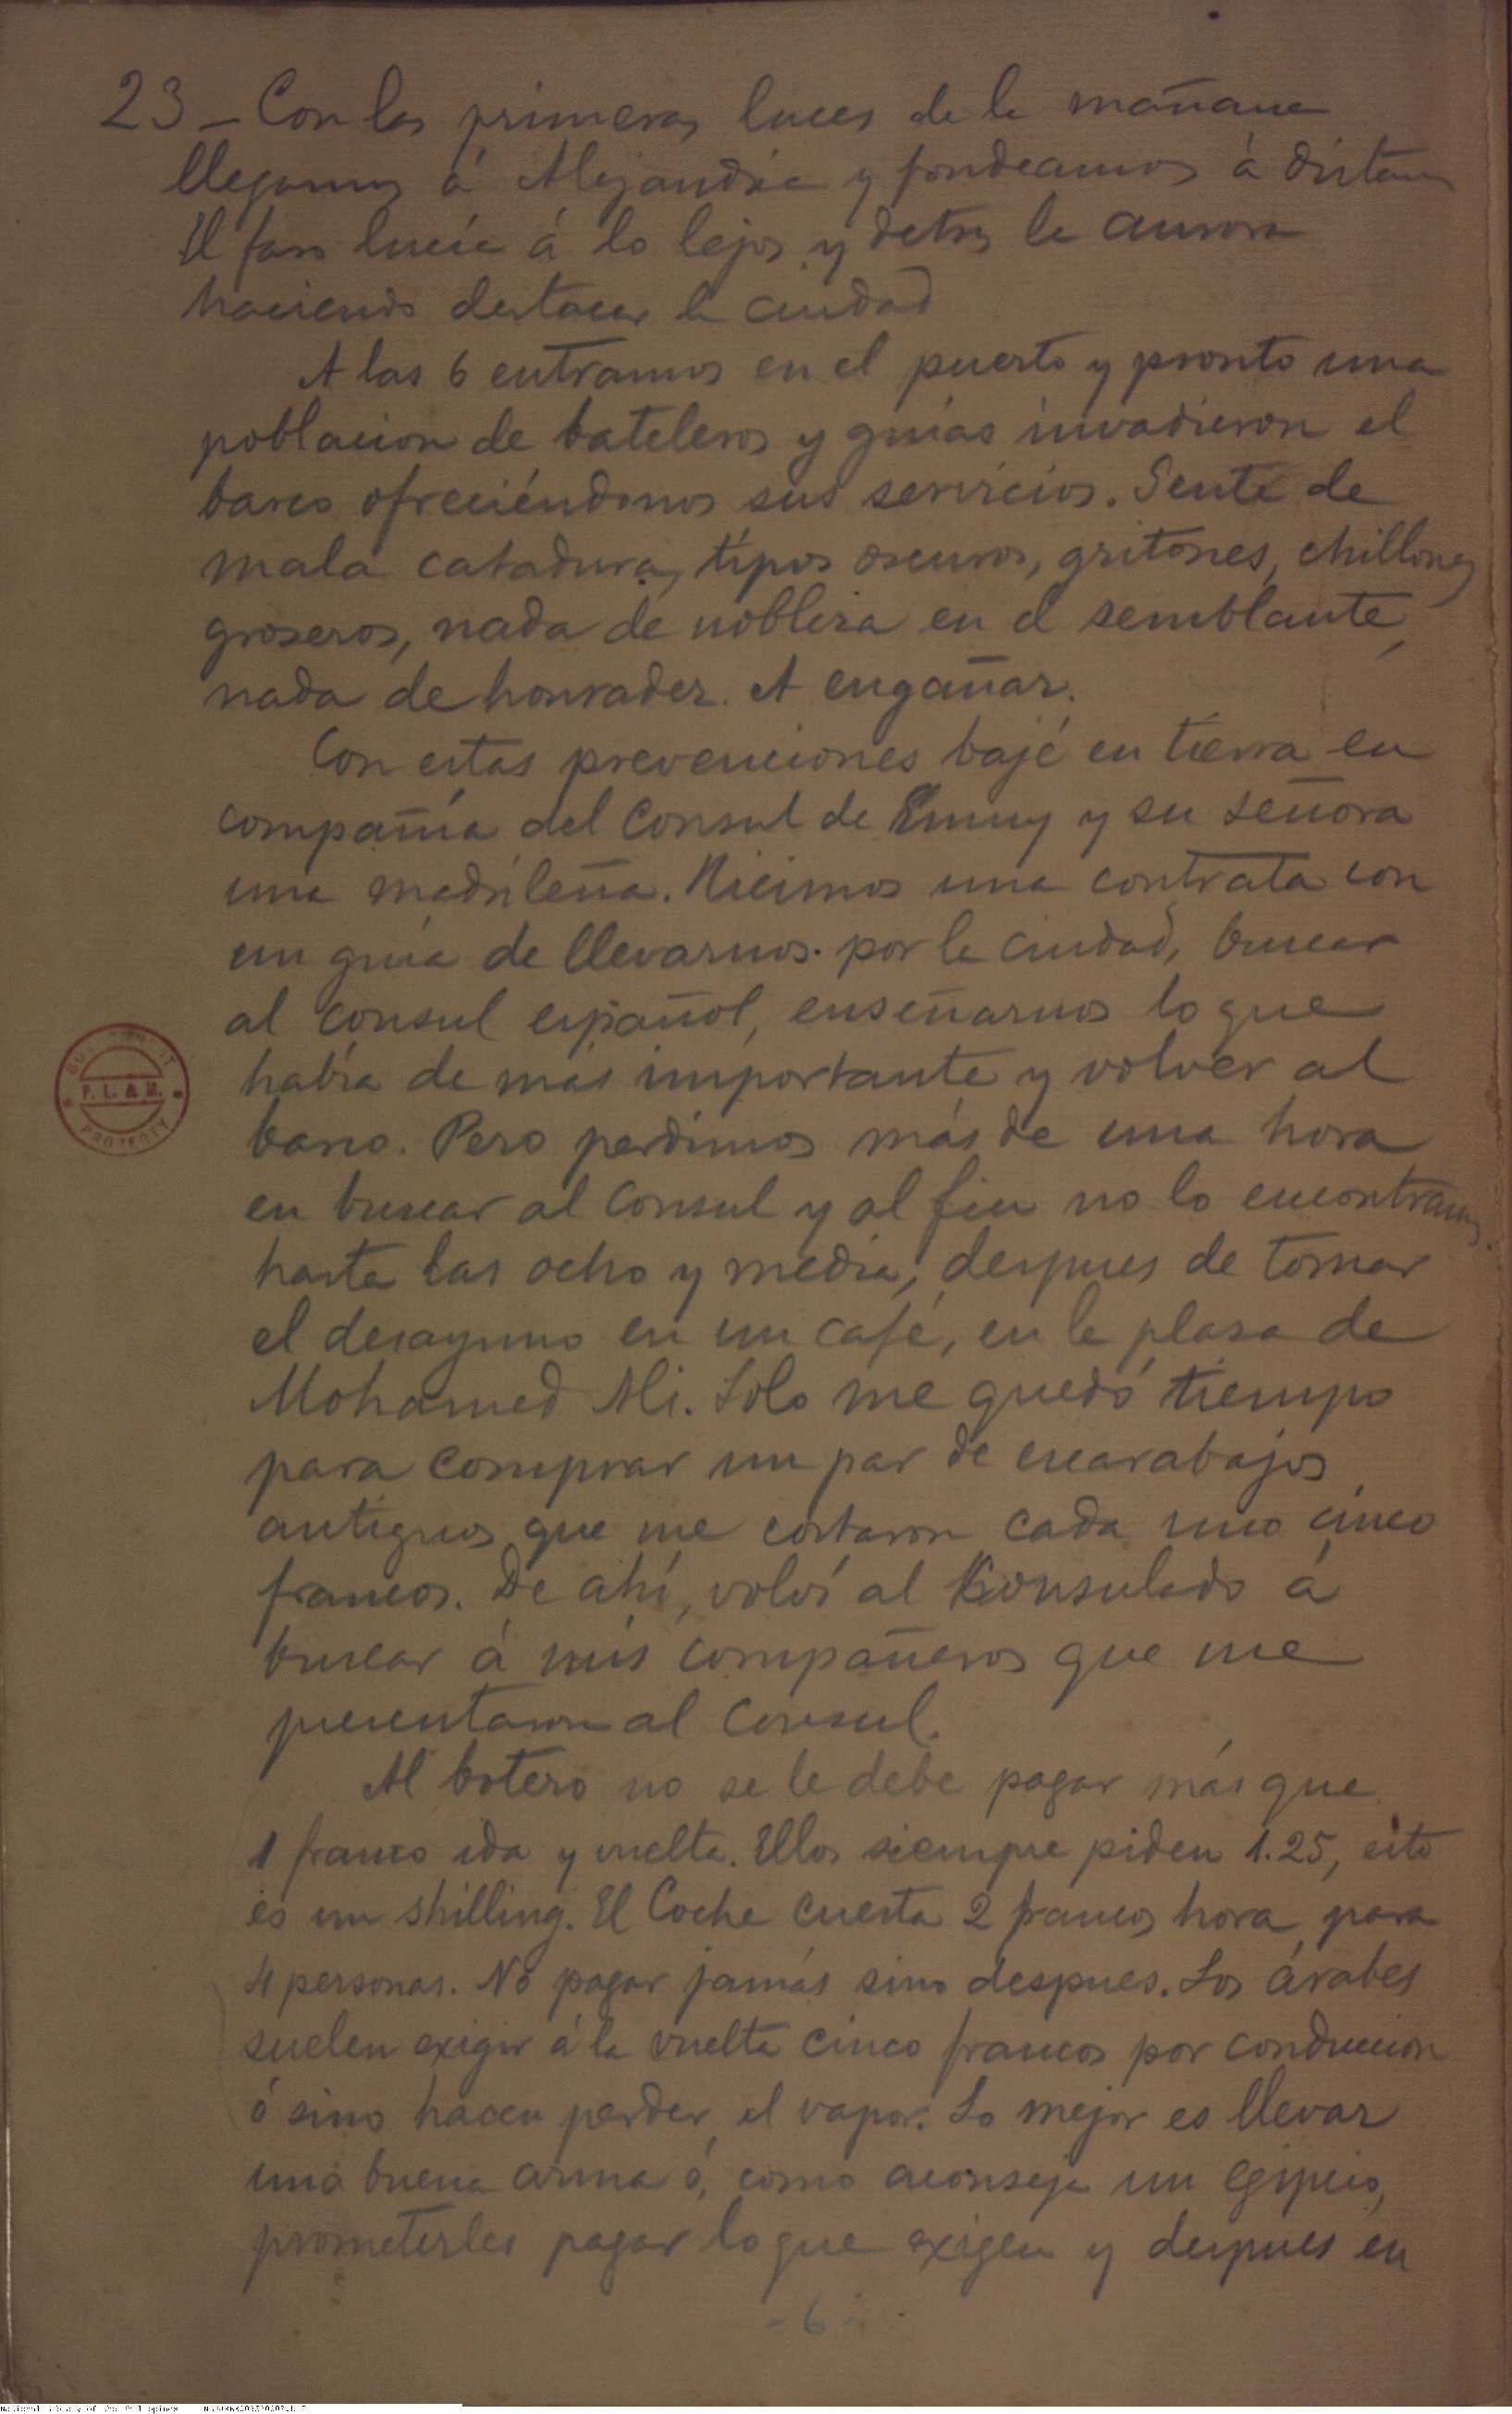 23 – Con las primeras luces de la mañana
llegamos á Alejandría y fondeamos á distan
El faro lucía á lo lejos y detras la aurora
haciendo destacar la ciudad
A las 6 entramos en el puerto y pronto una
poblacion de bateleros y guías invadieron el
barco ofreciéndonos sus servicios. Gente de
mala catadura, tipos oscuros, gritones, chillones
groseros, nada de nobleza en el semblante,
nada de honradez. A engañar.
Con estas prevenciones bajé en tierra en
compañía del Consul de y su señora
una madrileña. Hicimos una contrata con
un guía de llevarnos por la ciudad, buscar
al consul español, enseñarnos lo que
había de más importante y volver al
barco. Pero perdimos más de una hora
en buscar al Consul y al fin no lo encontramos
hasta las ocho y media, despues de tomar
el desayuno en un café, en la plasa de
Mohamed Ali. Solo me quedó tiempo
para comprar un par de escarabajos
antiguos que me costaron cada uno cinco
francos. De ahí, volví al Konsulado á
buscar á mis compañeros que me
presentaron al Consul.
Al botero no se le debe pagar más que
1 franco ida y vuelta. Ellos siempre piden 1.25, esto
es un shilling. El Coche cuesta 2 francos hora para
4 personas. No pagar jamás sino despues. Los árabes
suelen exigir á la vuelta cinco francos por conduccion
ó sino hacen perder el vapor. Lo mejor es llevar
una buena arma ó, como aconseja un egipcio,
prometerles pagar lo que exigen y despues en
- 6 -
GOVERNMENT
P. L. & M.
PROPERTY
National Library of the Philippines